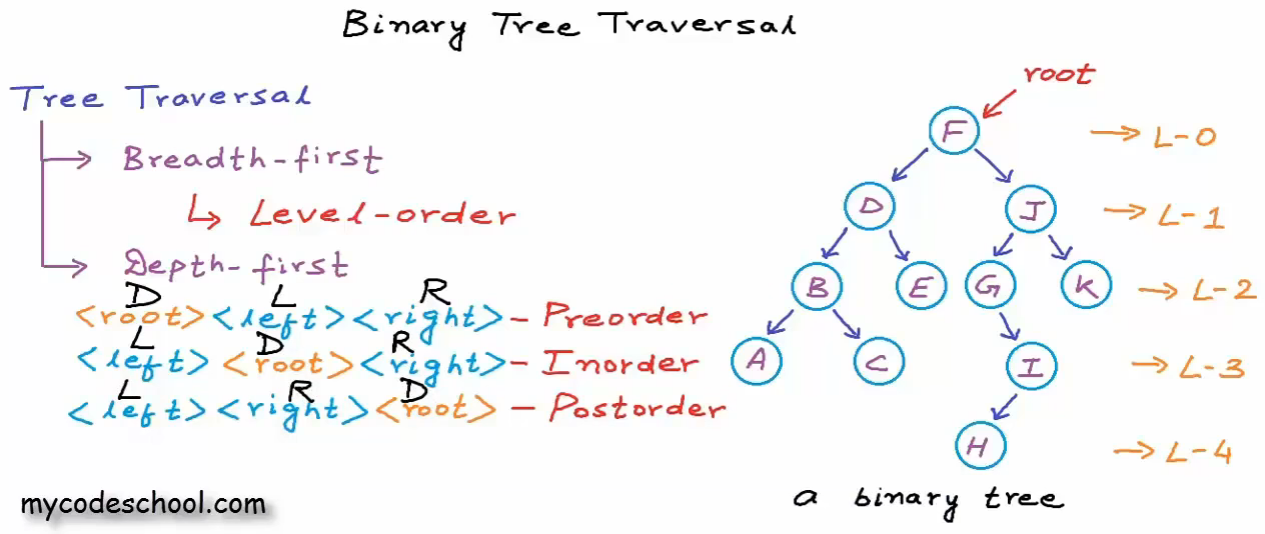 Binary Tree Traversal
Tree Traversal
Breadth-first
Level-order
Depth-first
D L R
<root><left><right> - Preorder
L D R
<left><root><right> - Inorder
L R D
<left><right><root> - Postorder
mycodeschool.com
root
F L-0
D J L-1
B E G K L-2
A C I L-3
H L-4
a binary tree